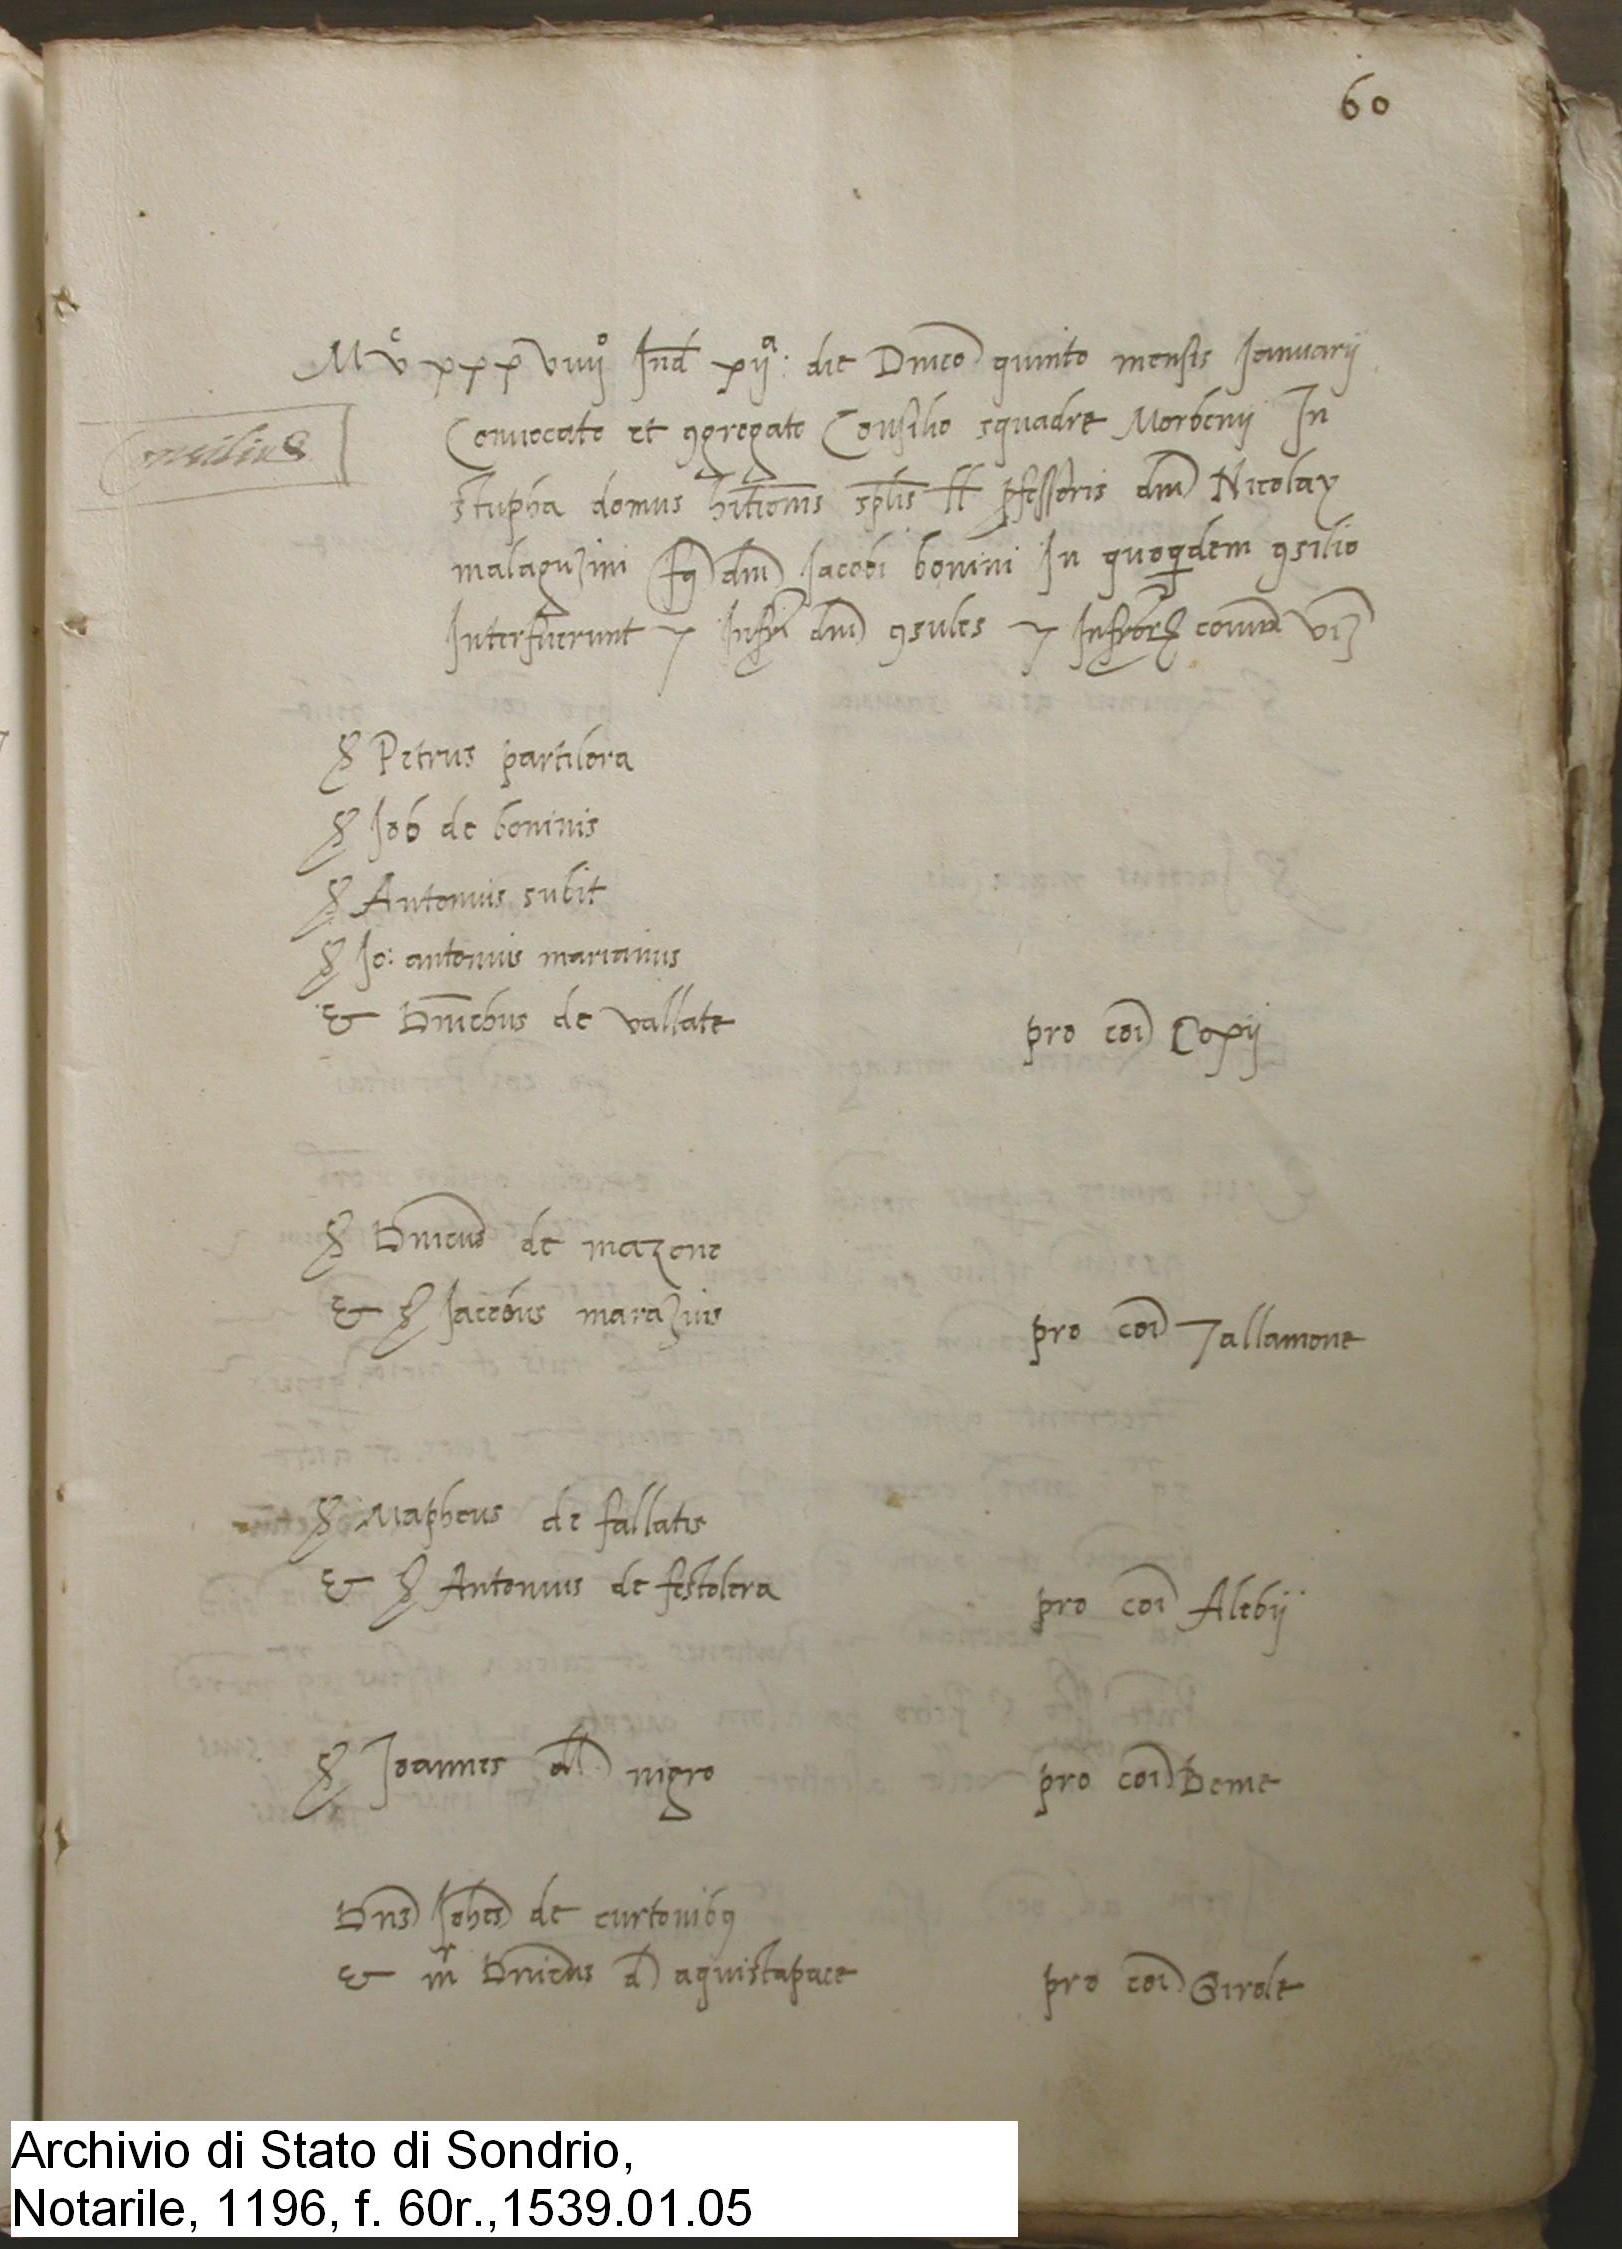 60
Mvᶜxxxviiijº Ind xijª: die Dnico quinto mensis Januarij
Consilius
Convocato et 9gregato Consilio squadre Morbenij In
stupha domus hitionis splis ll pfessoris dni Nicolay
malaguzini fq dni Jacobi bonini In quoqdem 9silio
Interfuerunt 7 Infri dni 9sules 7 comun viz
S Petrus partilora
S Job de boninis
S Antonius subit
S Jo: antonius marianus
& Dnichus de vallate
pro coi Coxij
S Dnicus de mazono
& S Jacobus marazius
pro coi Tallamone
S Mapheus de fallatis
& S Antonius de festolera
pro coi Alebij
S Joannes dl nigro
pro coi Deme
Dns Johes de curtonibq
& mr Dnicus d aquistapace
pro coi Girole
Archivio di Stato di Sondrio,
Notarile, 1196, f. 60r.,1539.01.05